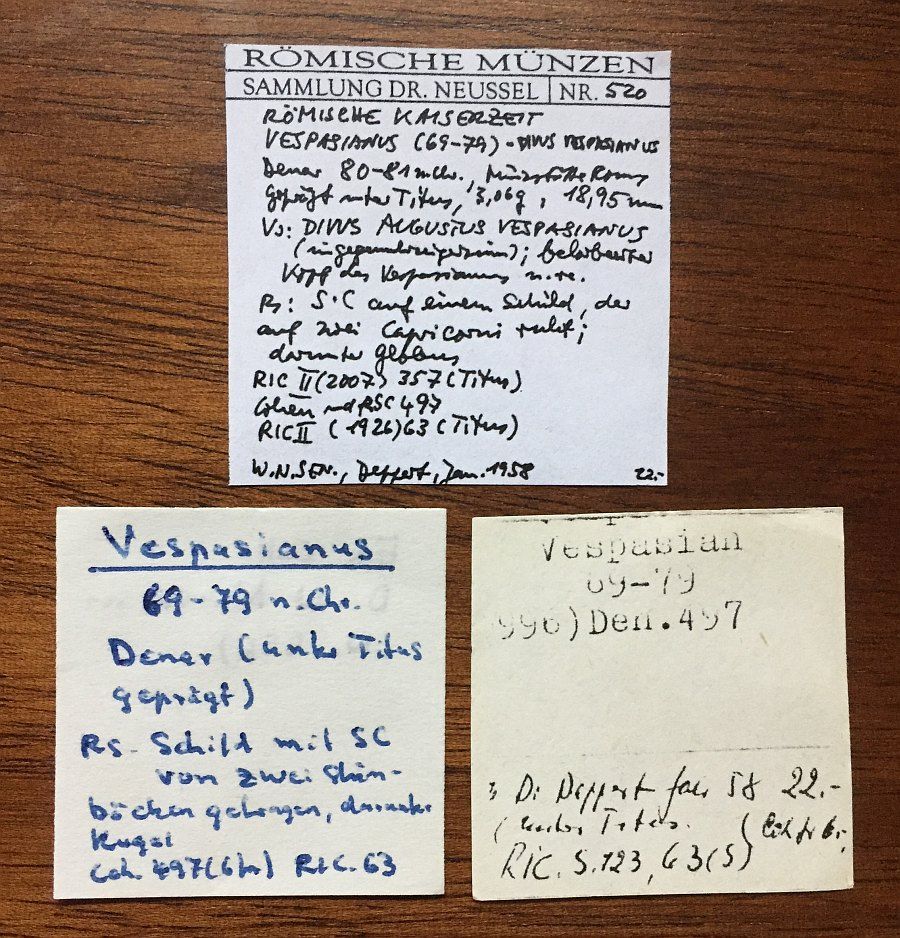 RÖMISCHE MÜNZEN
SAMMLUNG DR. NEUSSEL NR. 520
RÖMISCHE KAISERZEIT
VESPASIANUS (69-79) - DIVUS VESPASIANUS
Denar 80-81 n.Chr., Münzstätte Rom,
geprägt unter Titus, 3,06g, 18,95 mm
Vs: DIVUS AUGUSTUS VESPASIANUS
belorbeerter
Kopf des Vespasianus n. re.
Rs: S·C auf einem Schild, der
auf zwei Capricorni ruht;
darunter Globus
RIC II (2007) 357 (Titus)
Cohen und RSC 497
RIC II (1926) 63 (Titus)
W.N.SEN., Deppert, Jan. 1958 22.-
Vespasianus
69-79 n.Chr.
Denar (unter Titus
geprägt)
Rs- Schild mit SC
von zwei Stein-
böcken getragen, darunter
Kugel
Coh. 497 (6 fr) RIC. 63
Vespasian
69-79
996) Den. 497
Deppert Jan 58 22.-
(unter Titus.
RIC. S. 123, 63 (S)